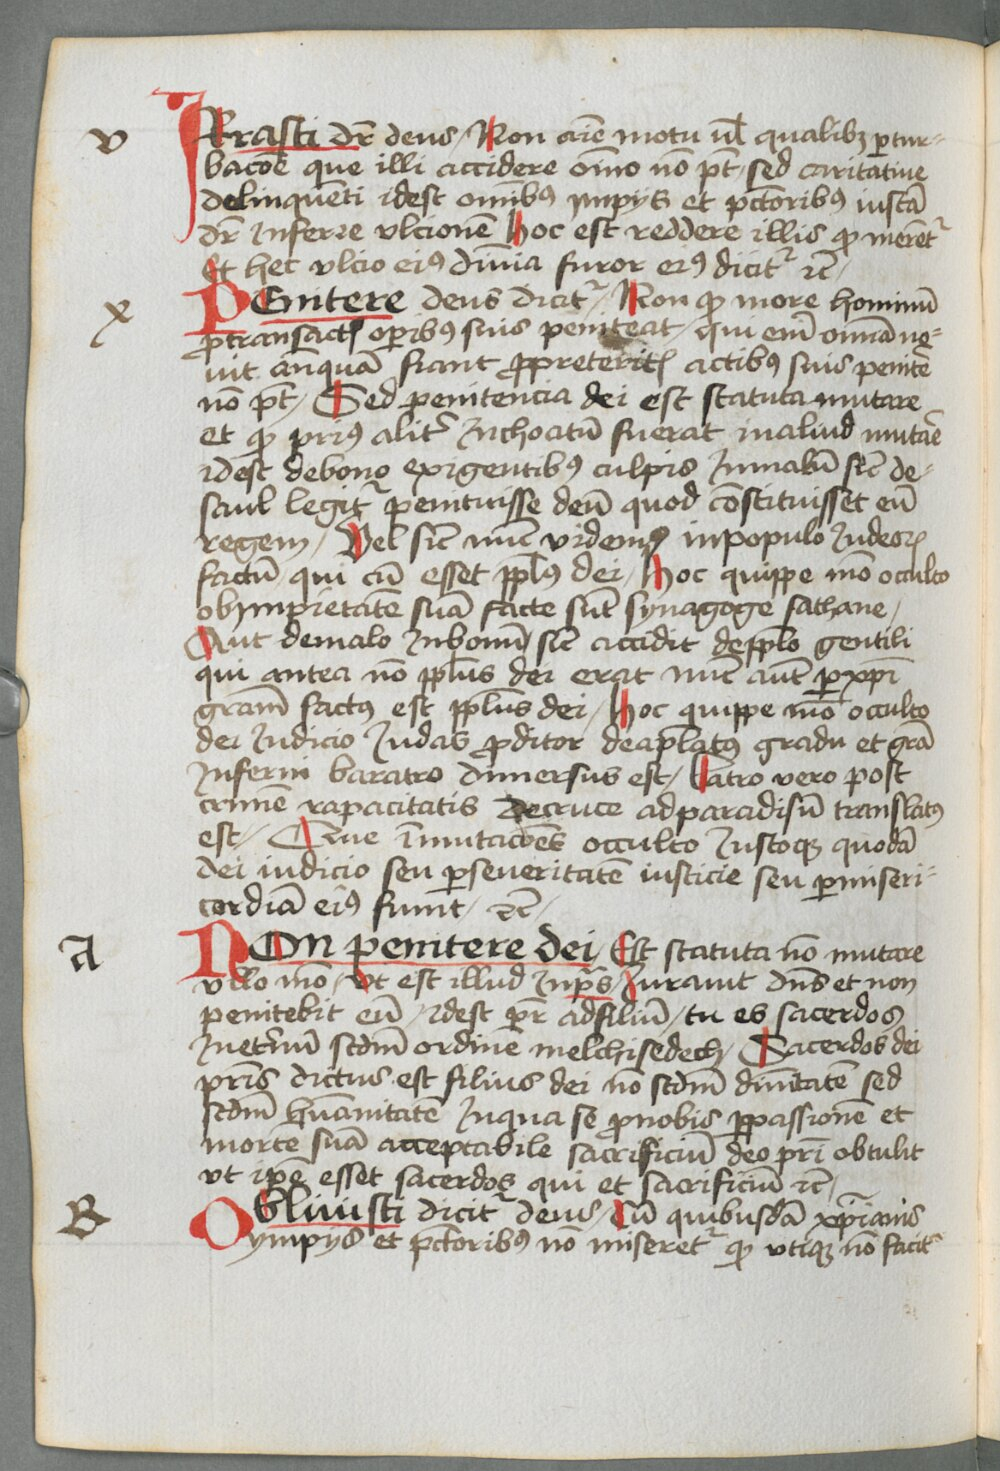 v
IRrasti dr̄ deus / Non aīe motu ul̄ qualibꝫ ꝑtur-
bacōe que illi accidere oīno nō pt̄ / sed caritatiue
delinquēti idest omībꝰ Impijs et pctōribus iustā
dr̄ Inferre vlcionē hoc est reddere illis ꝙ mēret᷑
Et hec vlcio eiꝰ diuīa furor eiꝰ dicit᷑ ⁊c̄ /
x
PEnitere deus dicit᷑ / Non ꝙ more hominū
ꝓ transactꝭ oꝑibꝰ suis peniteat / qui em̄ omīa no-
uit anꝗuā fiant ꝓ preteritꝭ actibꝰ suis penitē
nō pt̄ / Sed penitencia dei est statuta mutare
et ꝙ priꝰ alit᷑ Inchoatū fuerat inaliud mutāe
idest debono exigentibꝰ culpis Inmalū sic̄ de-
saul legit᷑ penituisse deū quod cōstituisset eū
regem / Vel sic̄ nūc videmꝰ inpopulo Iudeoꝝ
factū / qui cū esset ppl̄s dei / hoc quippe mō occulto
obimpietatē suā facte sūt synagoge sathane /
Aut demalo Inbonū sic̄ accidit depplo gentili
qui antea nō ppl̄us dei erat nūc aūt ꝑ xp̄i
grām factꝰ est ppl̄us dei / hoc quippe mō occulto
dei Iudicio Iudas ꝓditor deapl̄atꝰ gradu et grā
Inferni baratro dimersus est / Latro vero post
crimē rapacitatis decruce adparadisū translatꝰ
est / Que īmutacōes occulto Iustoqꝫ quodā
dei iudicio seu ꝑ seueritatē iusticie seu ꝑ miseri-
cordiā eiꝰ fiunt / ⁊c̄ /
A
NOn penitere dei / Est statuta nō mutare
vllo mō / vt est illud Inps̄ / Iurauit dn̄s et non
penitebit eū / idest pr̄ adfiliū / tu es sacerdos
Inet᷑nū scdm̄ ordinē melchisedech / Sacerdos dei
pr̄is dictus est filius dei nō scdm̄ diuītatē sed
scdm̄ hūanitatē Inqua se ꝓ nobis ꝑ passionē et
mortē suā acceptabile sacrificiū deo pr̄i obtulit
vt ip̄e esset sacerdos qui et sacrificiū ⁊c̄ /
B
Obliuisti dicit᷑ deus / Cū quibusdā xp̄ianis
ympijs et pctōribꝰ nō miseret᷑ ꝙ vtiqꝫ nō facit᷑